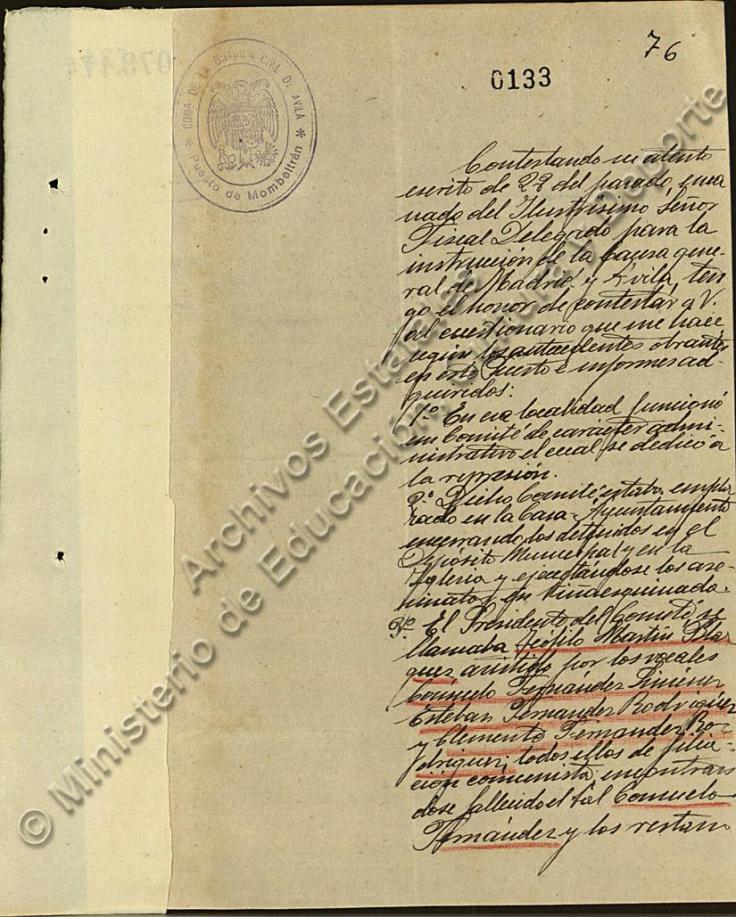 76
0133
COMA DE LA GUARDIA CIVIL DE AVILA
Puesto de Mombeltrán
Contestando su atento
escrito de 22 del pasado, ema
nado del Ilustrísimo Señor
Fiscal Delegado para la
instrucción de la Causa gene-
ral de Madrid y Avila, ten
go el honor de contestar a V.
al cuestionario que me hace,
según los antecedentes obrantes
en este Puesto e informes ad-
quiridos:
1º En esa localidad funcionó
un Comité de caracter admi-
nistrativo el cual se dedicó a
la represión.
2º Dicho Comité estaba empla
zado en la Casa-Ayuntamiento
encerrando los detenidos en el
Depósito Municipal y en la
Iglesia y ejecutándose los ase-
sinatos en
3º El Presidente del Comité se
llamaba Teófilo Martín Blaz
quez asistido por los vocales
Consuelo Fernández Jiménez
Esteban Fernández Rodríguez
y Clemente Fernández Ro-
driguez, todos ellos de filia-
ción comunista, encontran
dose fallecido el tal Consuelo
Fernández y los restan
© Ministerio de Educación, Cultura y Deporte
Archivos Estatales